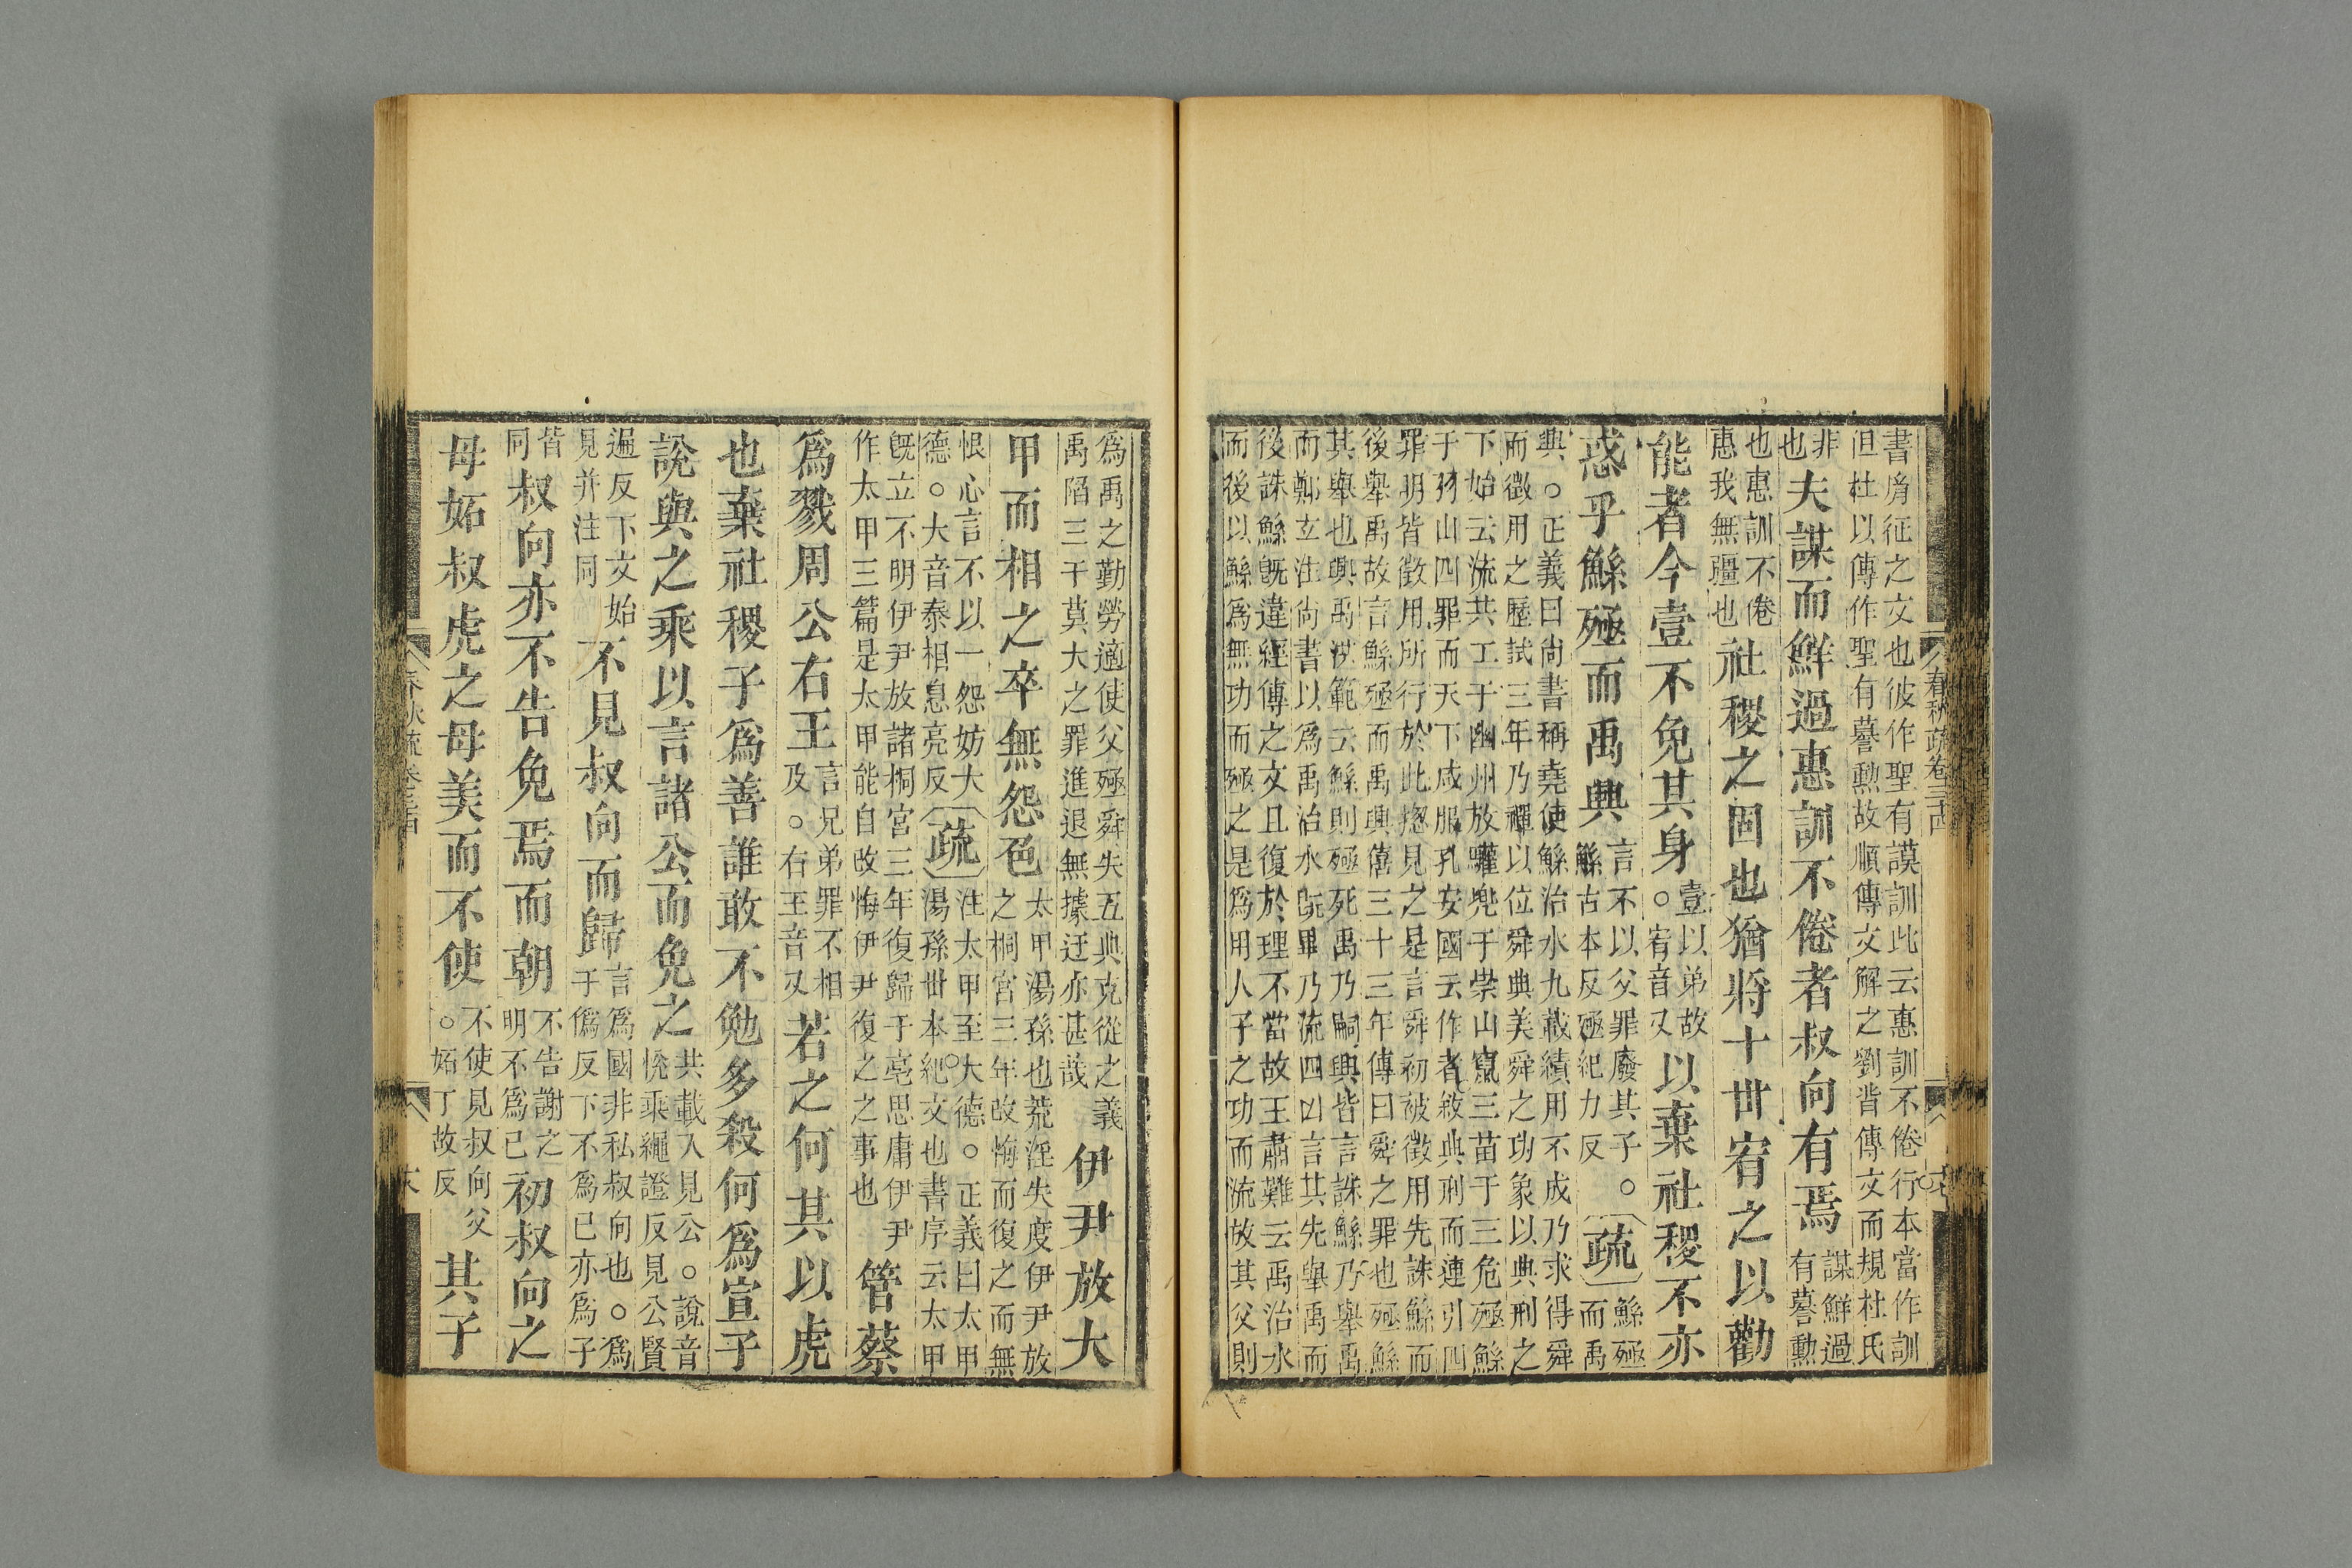 書胤征之文也彼作聖有謨訓此云惠訓不倦行本當作訓
但杜以傳作聖有謩勲故順傳文解之劉背傳文而規杜氏
非也夫謀而鮮過惠訓不倦者叔向有焉謀鮮過有謩勲
也惠訓不倦惠我無疆也社稷之固也猶將十世宥之以勸
能者今壹不免其身壹以弟故○宥音又以棄社稷不亦
惑乎鯀殛而禹興言不以父罪廢其子○鯀古本反殛紀力反疏鯀殛而禹
興○正義曰尚書稱堯使鯀治水九載績用不成乃求得舜
而徵用之歷試三年乃禪以位舜典美舜之功象以典刑之
下始云流共工于幽州放驩兜于崇山竄三苗于三危殛鯀
于羽山四罪而天下咸服孔安國云作者敘典刑而連引四
罪明皆徵用所行於此揔見之是言舜初被徵用先誅鯀而
後舉禹故言鯀殛而禹興僖三十三年傳曰舜之罪也殛鯀
其舉也興禹洪範云鯀則殛死禹乃嗣興皆言誅鯀乃舉禹
而鄭玄注尚書以爲禹治水既畢乃流四凶言其先舉禹而
後誅鯀既違經傳之文且復於理不當故王肅難云禹治水
而後以鯀爲無功而殛之是爲用人子之功而流放其父則
爲禹之勤勞適使父殛舜失五典克從之義
禹陷三千莫大之罪進退無據迂亦甚哉伊尹放大
甲而相之卒無怨色太甲湯孫也荒淫失度伊尹放之桐宮三年改悔而復之而無
恨心言不以一怨妨大德○大音泰相息亮反疏注太甲至大德○正義曰太甲湯孫世本紀文也書序云太甲
既立不明伊尹放諸桐宮三年復歸于亳思庸伊尹作太甲三篇是太甲能自改悔伊尹復之之事也管蔡
爲戮周公右王言兄弟罪不相及○右王音又若之何其以虎
也棄社稷子爲善誰敢不勉多殺何爲宣子
說與之乘以言諸公而免之共載入見公○說音悅乘繩證反見公賢
遍反下文始見并注同不見叔向而歸言爲國非私叔向也○爲于僞反下不爲已亦爲子
皆同叔向亦不告免焉而朝不告謝之明不爲已初叔向之
母妬叔虎之母美而不使不使見叔向父○妬丁故反其子
春秋疏卷三十四